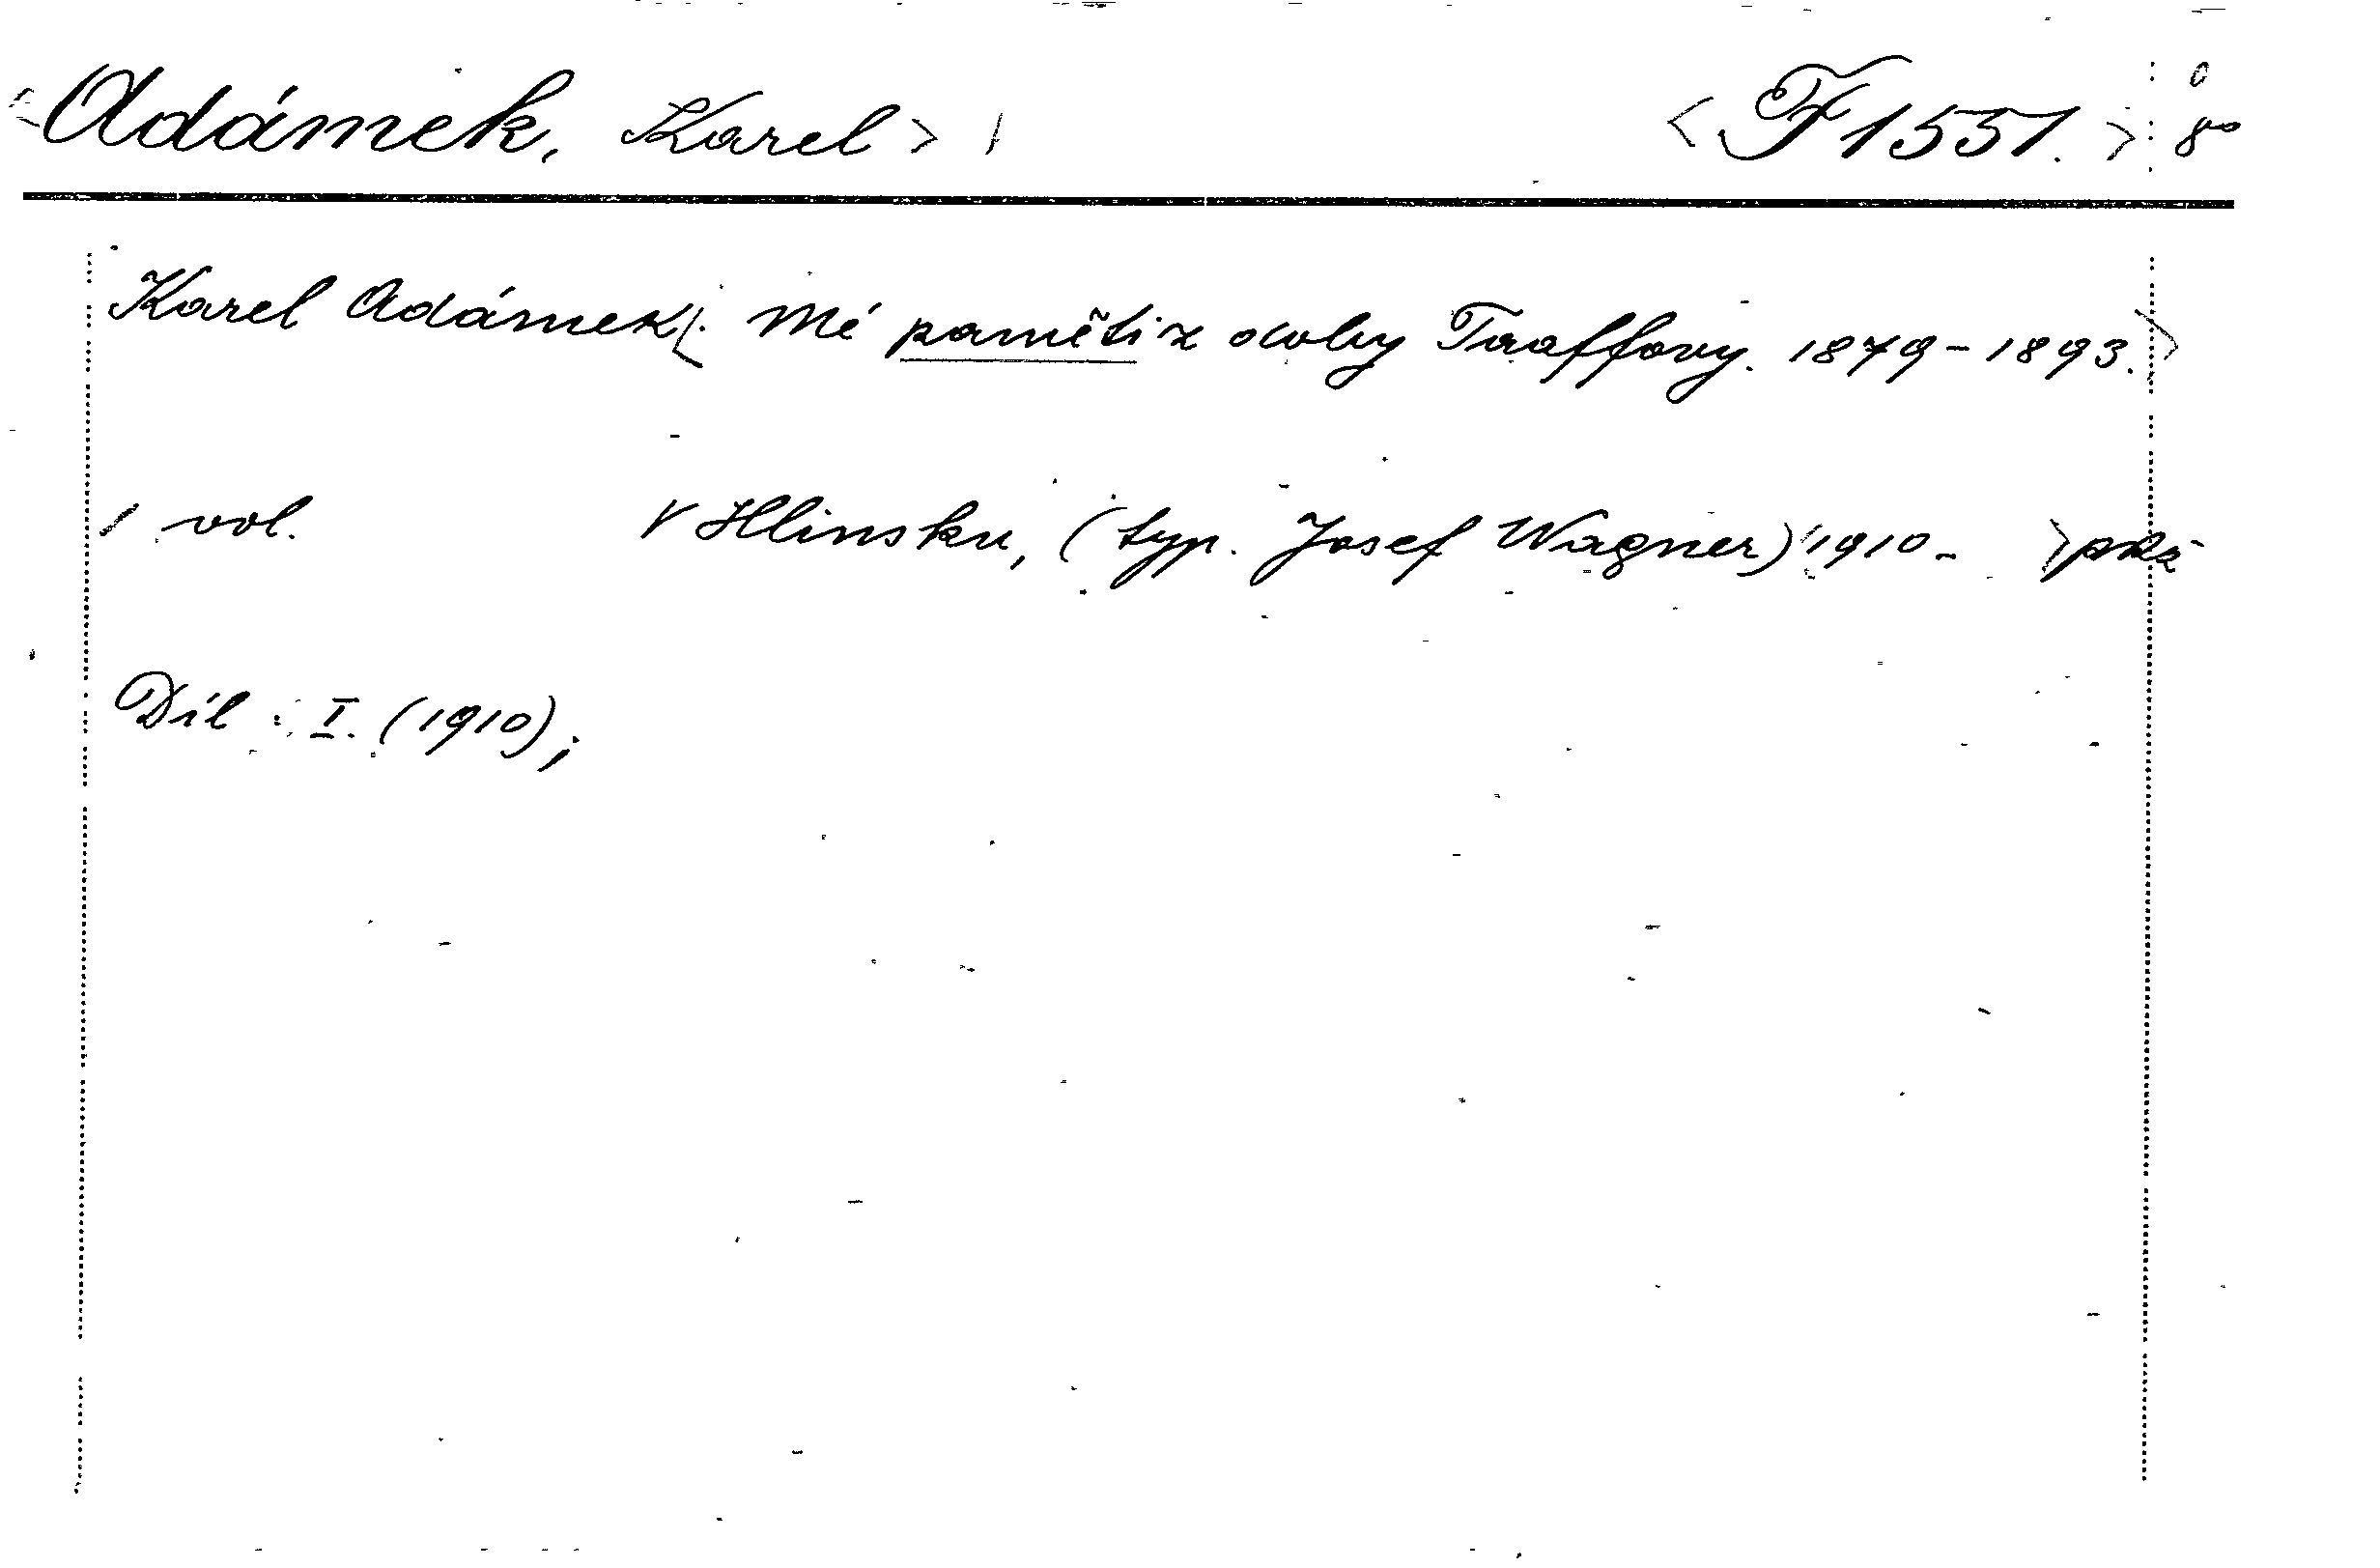 <Adámek, Karel> / <F 1551.> 8°
Karel Adámek<. Mé paměti z doby Taaffovy. 1879-1893.>
1 vol. V Hlinsku, (typ. Josef Wagner) 1910-
Díl : I. (1910);